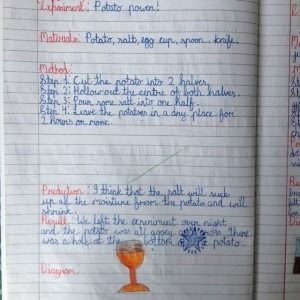 Experiment: Potato power!
Materials: Potato, salt, egg cup, spoon, knife.
Method:
Step 1: Cut the potato into 2 halves.
Step 2: Hollow out the centre of both halves.
Step 3: Pour some salt into one half.
Step 4: Leave the potatoes in a dry place for
2 hours or more.
Prediction: I think that the salt will suck
up all the moisture from the potato and will
shrink.
Result: We left the experiment over night
and the potato was all gooey There
was a hole at the bottom potato.
Diagram